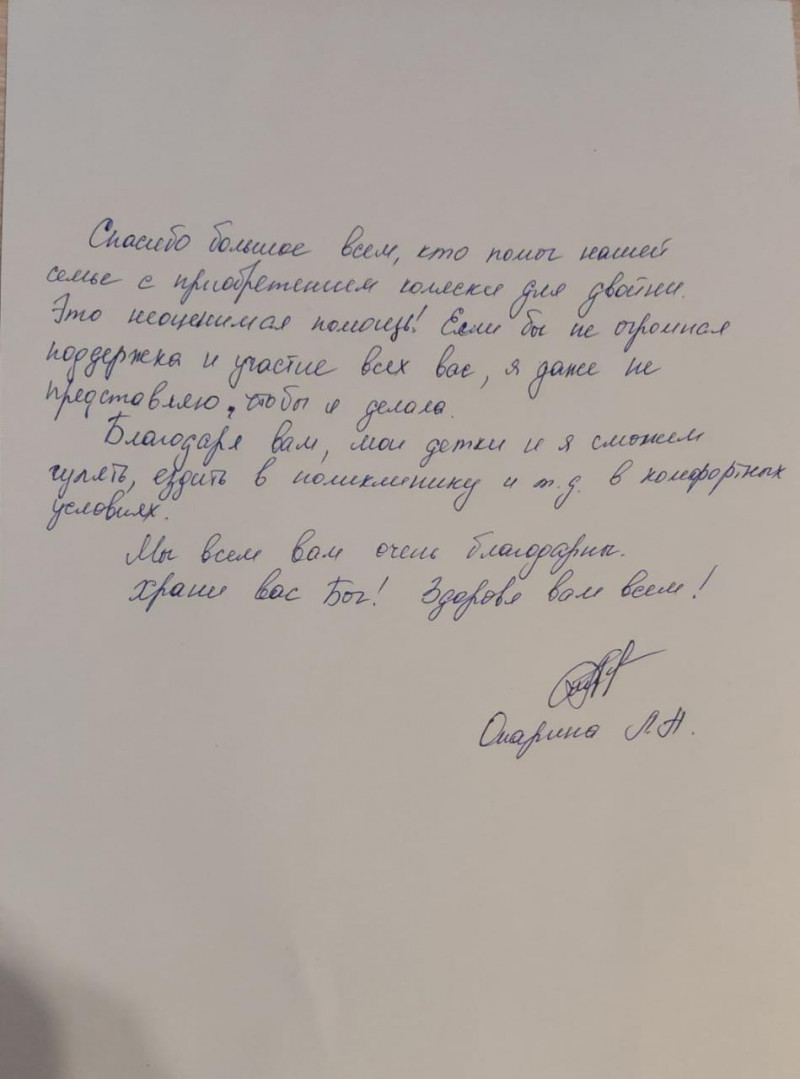 Спасибо большое всем, кто помог нашей
семье с приобретением коляски для двойни.
Это неоценимая помощь! Если бы не огромная
поддержка и участие всех вас, я даже не
представляю, чтобы я делала.
Благодаря вам, мои детки и я сможем
гулять, ездить в поликлинику и т.д. в комфортных
условиях.
Мы всем вам очень благодарны.
Храни вас Бог! Здоровя вам всем!
Опарина Л.Н.